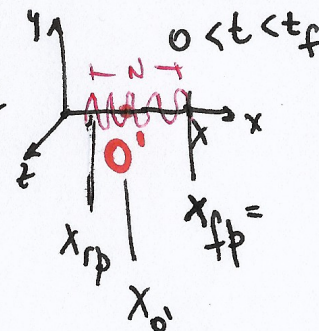 y
0 < t < t_f
⊢ N ⊣
x
z
O'
x
x_rp
x_fp =
x_o'